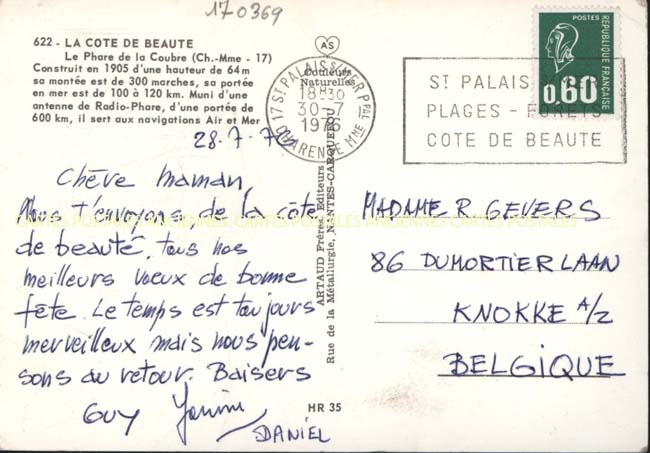 170369
622 - LA COTE DE BEAUTE
Le Phare de la Coubre (Ch.-Mme - 17)
Construit en 1905 d'une hauteur de 64 m
sa montée est de 300 marches, sa portée
en mer est de 100 à 120 km. Muni d'une
antenne de Radio-Phare, d'une portée de
600 km, il sert aux navigations Air et Mer
AS
Couleurs
Naturelles
17 ST PALAIS S/MER Ppal
18H30
30-7
1976
CHARENTE Mme
ST PALAIS
PLAGES - FORETS
COTE DE BEAUTE
POSTES
RÉPUBLIQUE FRANÇAISE
0,60
28.7.76
Chère Maman,
Nous t'envoyons, de la côte
de beauté, tous nos
meilleurs voeux de bonne
fête. Le temps est toujours
merveilleux mais nous pen-
sons au retour. Baisers
GUY
DANIEL
CARTES POSTALES ANCIENNES CARTES POSTALES ANCIENNES CARTES POSTALES
ARTAUD Frères, Editeurs
Rue de la Métallurgie, NANTES-CARQUEFOU
HR 35
MADAME R. GEVERS
86 DUMORTIERLAAN
KNOKKE A/Z
BELGIQUE